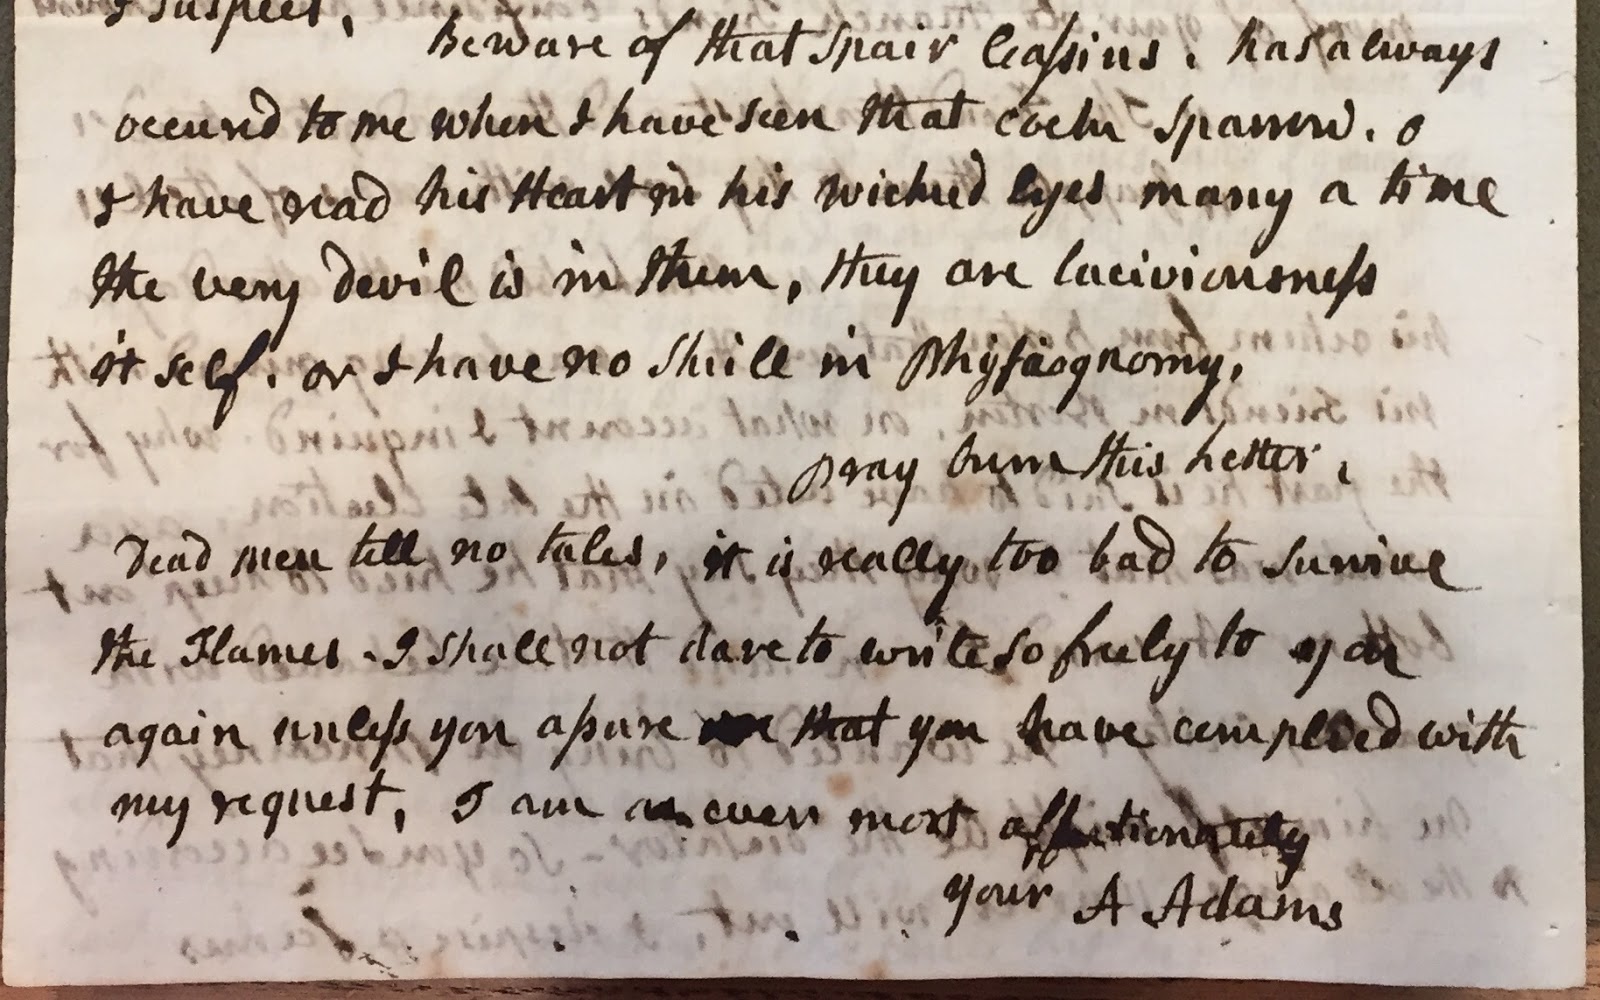 I suspect.
Beware of that spair Cassius. has always
occured to me when I have seen that cock sparrow. o
I have read his Heart in his wicked Eyes many a time
the very devil is in them, they are laciviousness
it self. or I have no skill in Physiognomy,
pray burn this Letter,
Dead men tell no tales, it is really too bad to survive
the Flames - I shall not dare to write so freely to you
again unless you assure that you have complied with
my request, I am as ever most affectionately
your A Adams